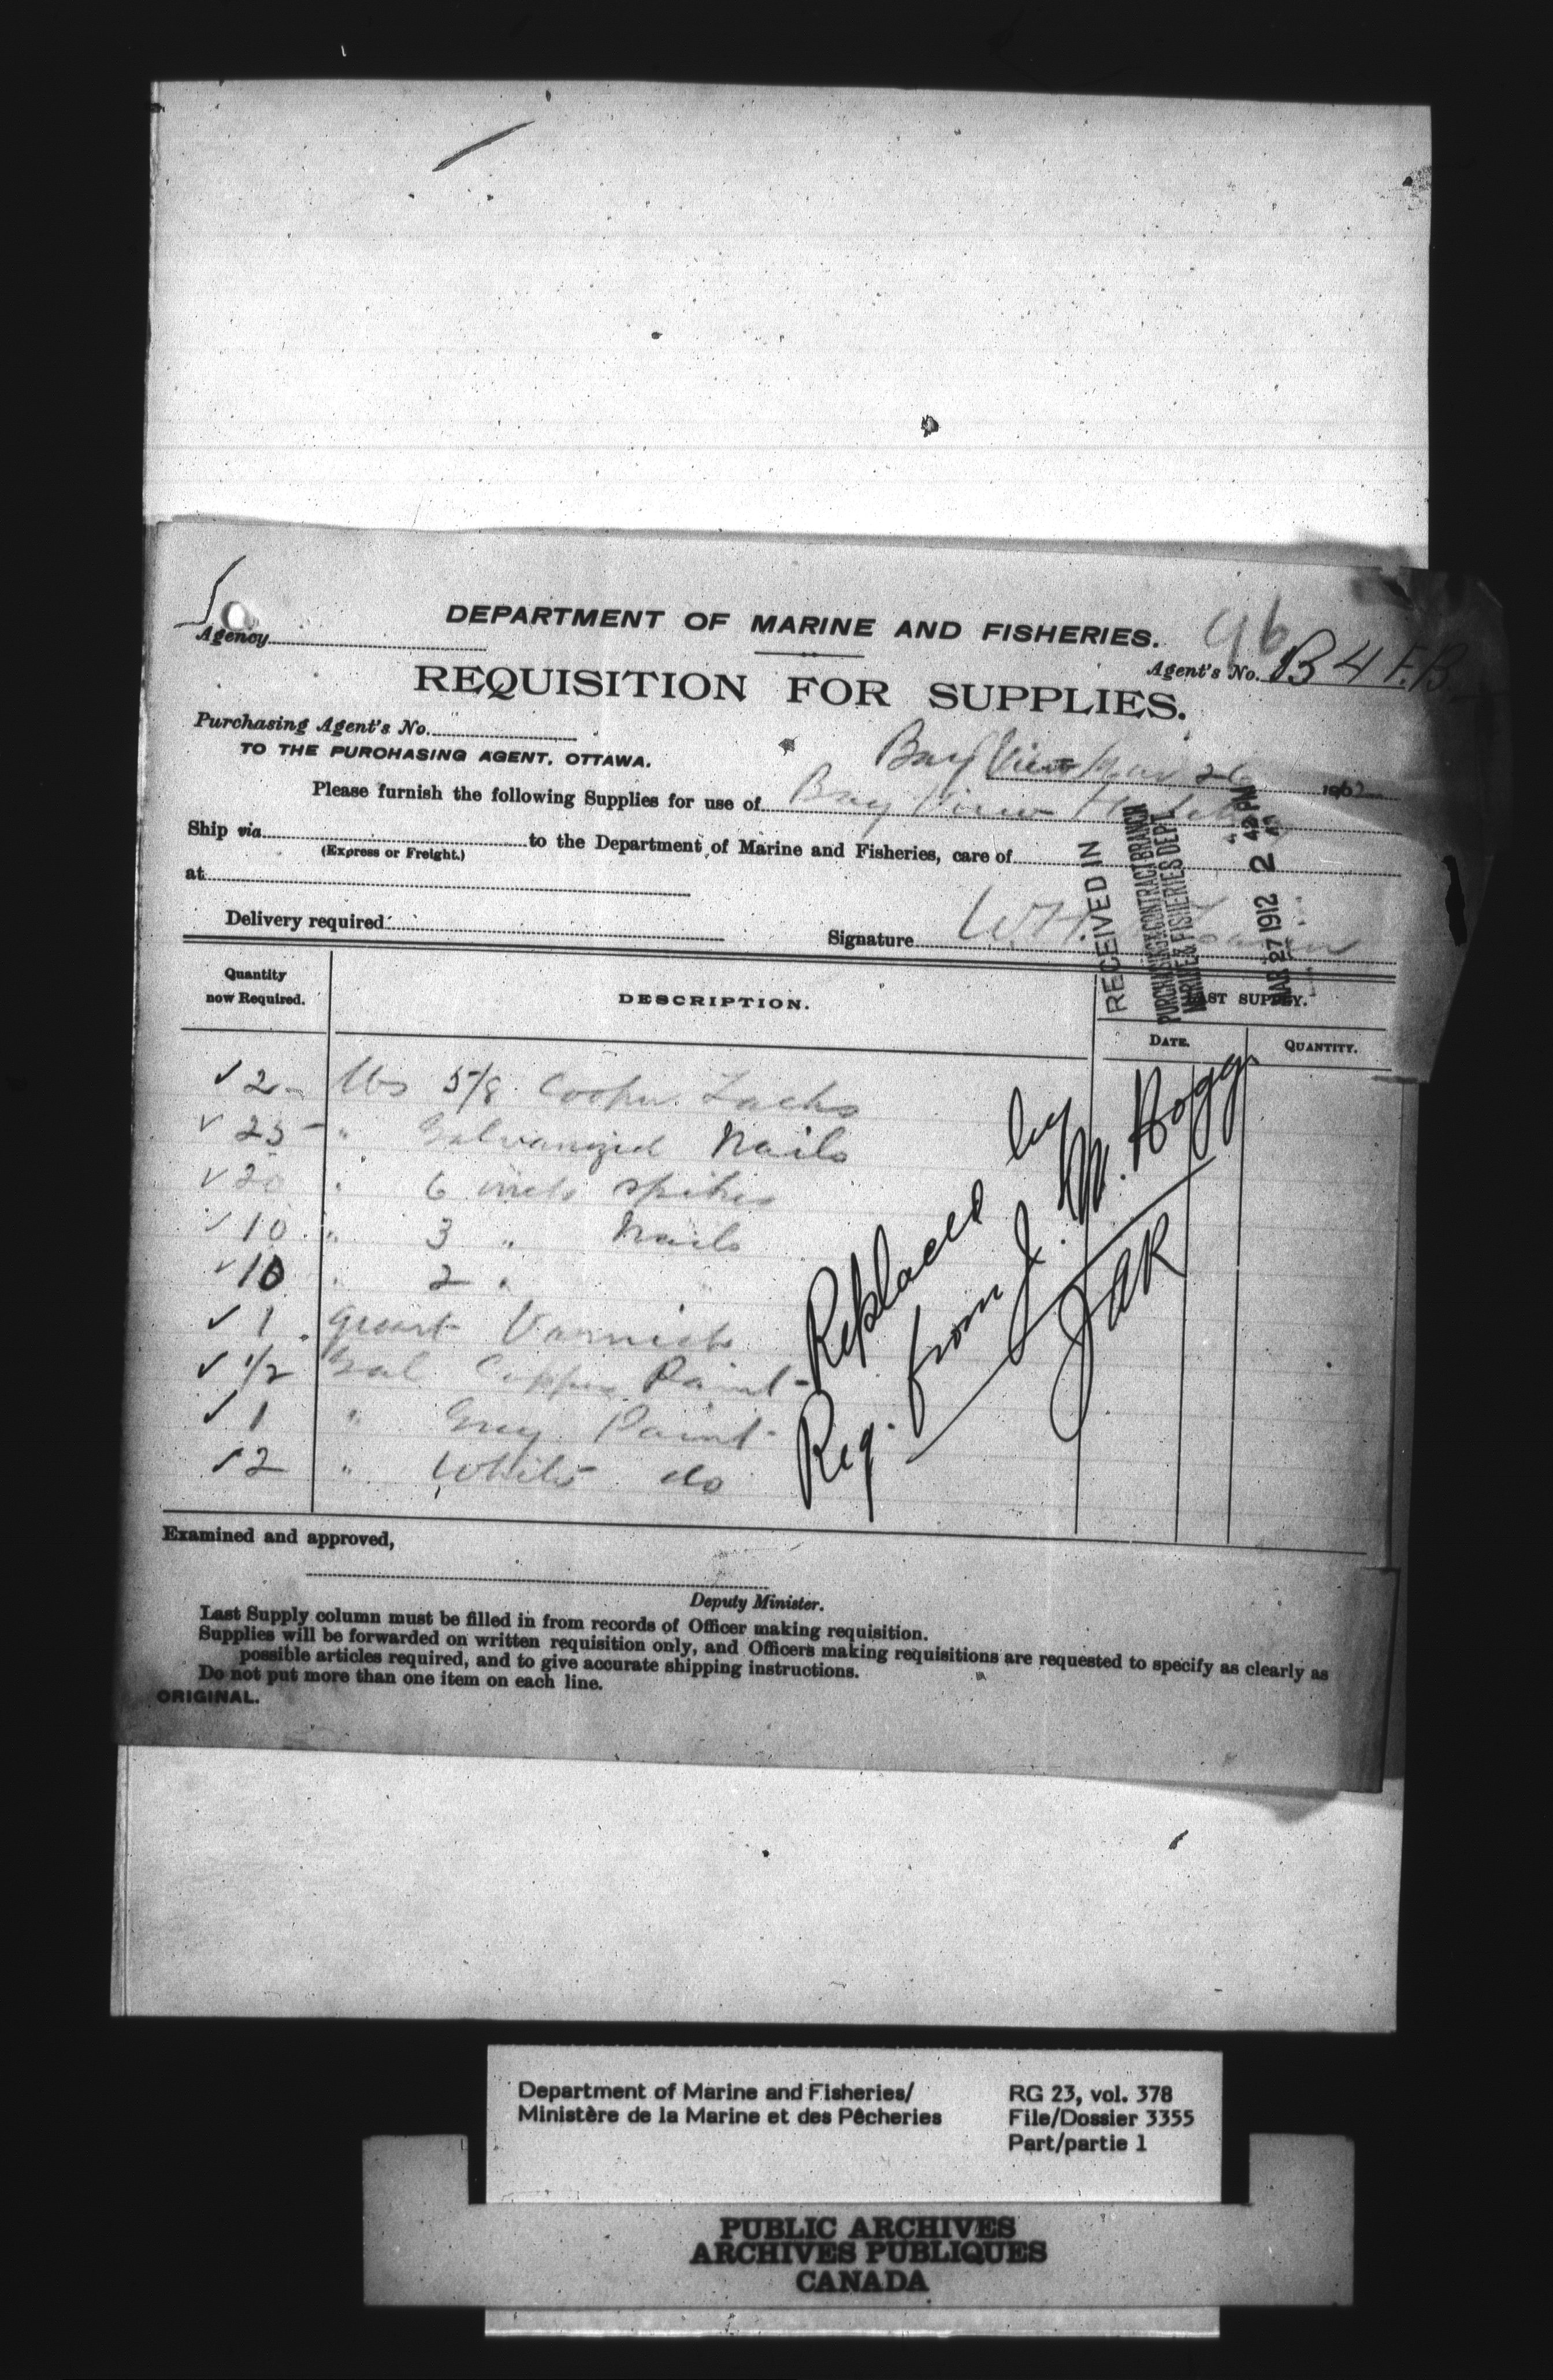 DEPARTMENT OF MARINE AND FISHERIES.
96
Agency
Agent's No. B 4 F.B.
REQUISITION FOR SUPPLIES.
Purchasing Agent's No.
TO THE PURCHASING AGENT, OTTAWA.
Bay View Mar 26 191
Please furnish the following Supplies for use of Bay View Hatchery
Ship via to the Department of Marine and Fisheries, care of
(Express or Freight.)
at
Delivery required
Signature W.H.
RECEIVED IN
PURCHASING & CONTRACT BRANCH
MARINE & FISHERIES DEPT.
MAR 27 1912 2 PM
Quantity now Required.
DESCRIPTION.
LAST SUPPLY.
DATE.
QUANTITY.
✓ 2 - lbs 5/8 Cooper Tacks
✓ 25 - " Galvanized Nails
✓ 20 " 6 inch spikes
✓ 10 " 3 " Nails
✓ 10 " 2 "
✓ 1 quart Varnish
✓ 1/2 Gal Copper Paint -
✓ 1 " Grey Paint -
✓ 2 " White do
Replaced by
Req. from J. M. Hogg.
JAR
Examined and approved,
Deputy Minister.
Last Supply column must be filled in from records of Officer making requisition.
Supplies will be forwarded on written requisition only, and Officers making requisitions are requested to specify as clearly as
possible articles required, and to give accurate shipping instructions.
Do not put more than one item on each line.
ORIGINAL.
Department of Marine and Fisheries/
Ministère de la Marine et des Pêcheries
RG 23, vol. 378
File/Dossier 3355
Part/partie 1
PUBLIC ARCHIVES
ARCHIVES PUBLIQUES
CANADA